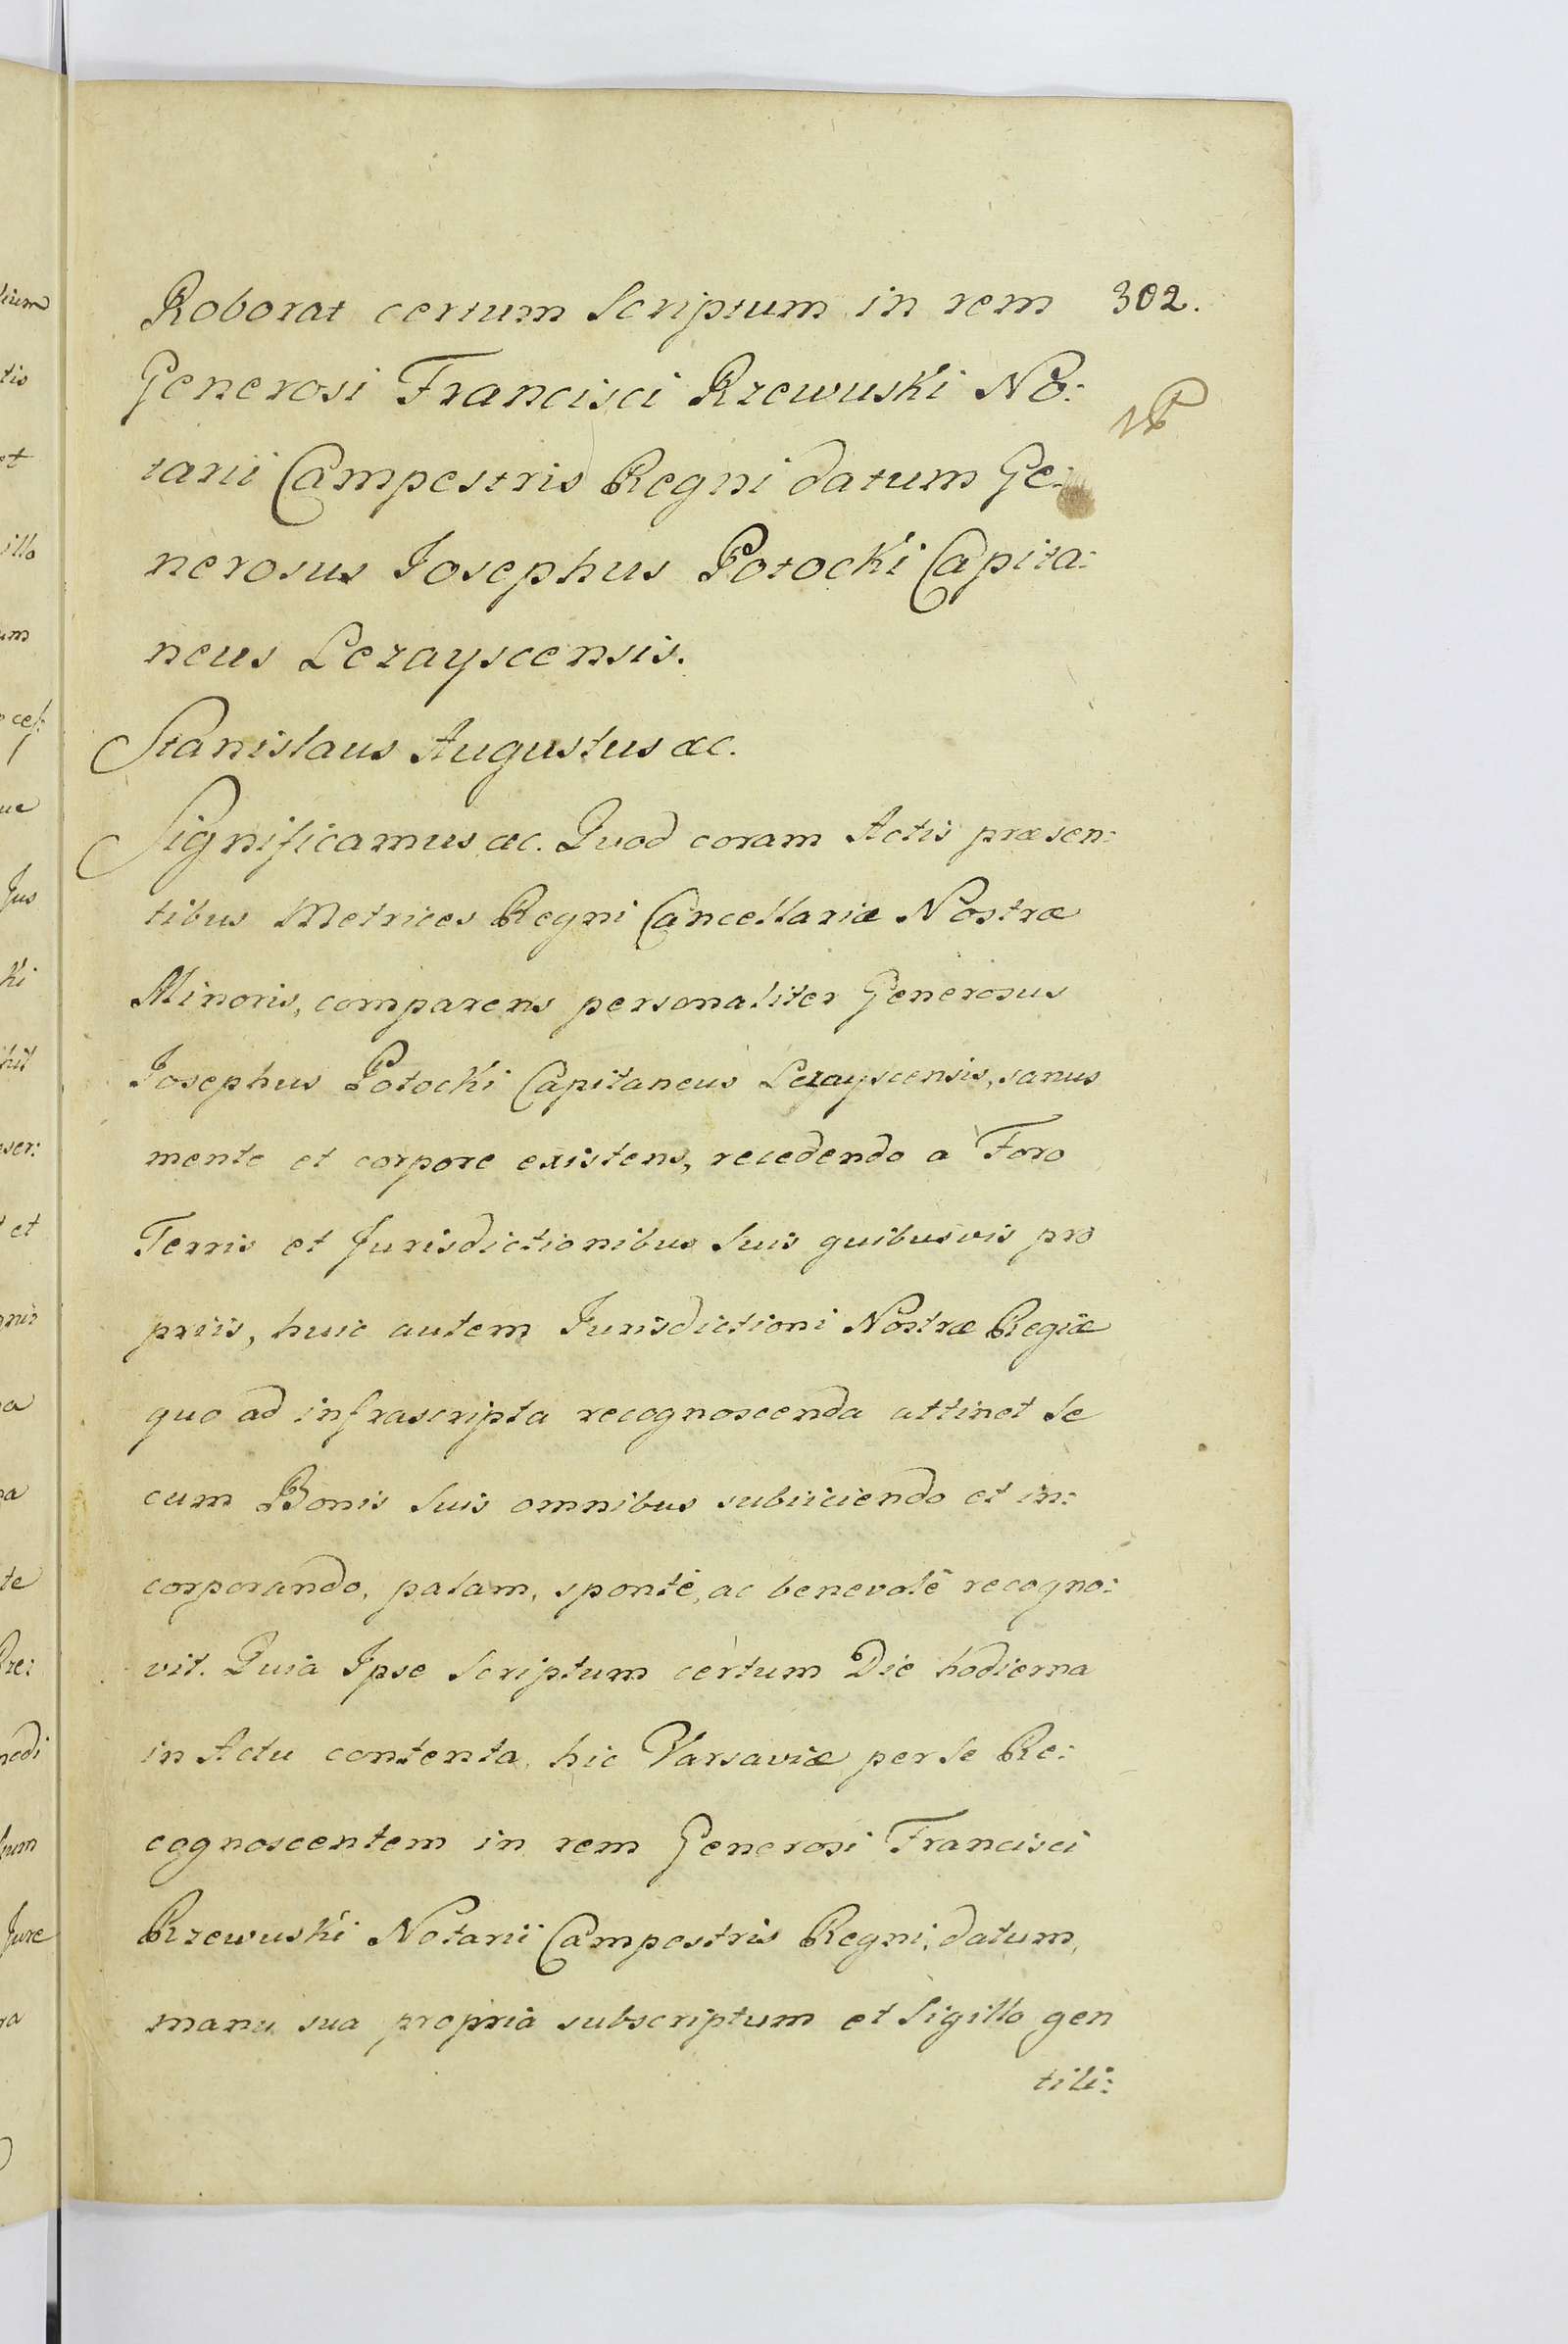 302.
Roborat certum Scriptum in rem
Generosi Francisci Rzewuski No:
tarii Campestris Regni datum Ge:
nerosus Josephus Potocki Capita:
neus Lezayscensis.
Stanislaus Augustus æc.
Significamus æc. Quod coram Actis præsen:
tibus Metrices Regni Cancellariæ Nostræ
Minoris, comparens personaliter Generosus
Josephus Potocki Capitaneus Lezayscensis, sanus
mente et corpore existens, recedendo a Foro
Terris et Jurisdictionibus Suis quibusvis pro
priis, huic autem Jurisdictioni Nostræ Regiæ
quo ad infrascripta recognoscenda attinet Se
cum Bonis Suis omnibus subiiciendo et in:
corporando, palam, spontè, ac benevolè recogno:
vit. Quia Ipse Scriptum certum Die hodierna
in Actu contenta, hic Varsaviæ per Se Re:
cognoscentem in rem Generosi Francisci
Rzewuski Notarii Campestris Regni, datum,
manu sua propria subscriptum et Sigillo gen
tili: